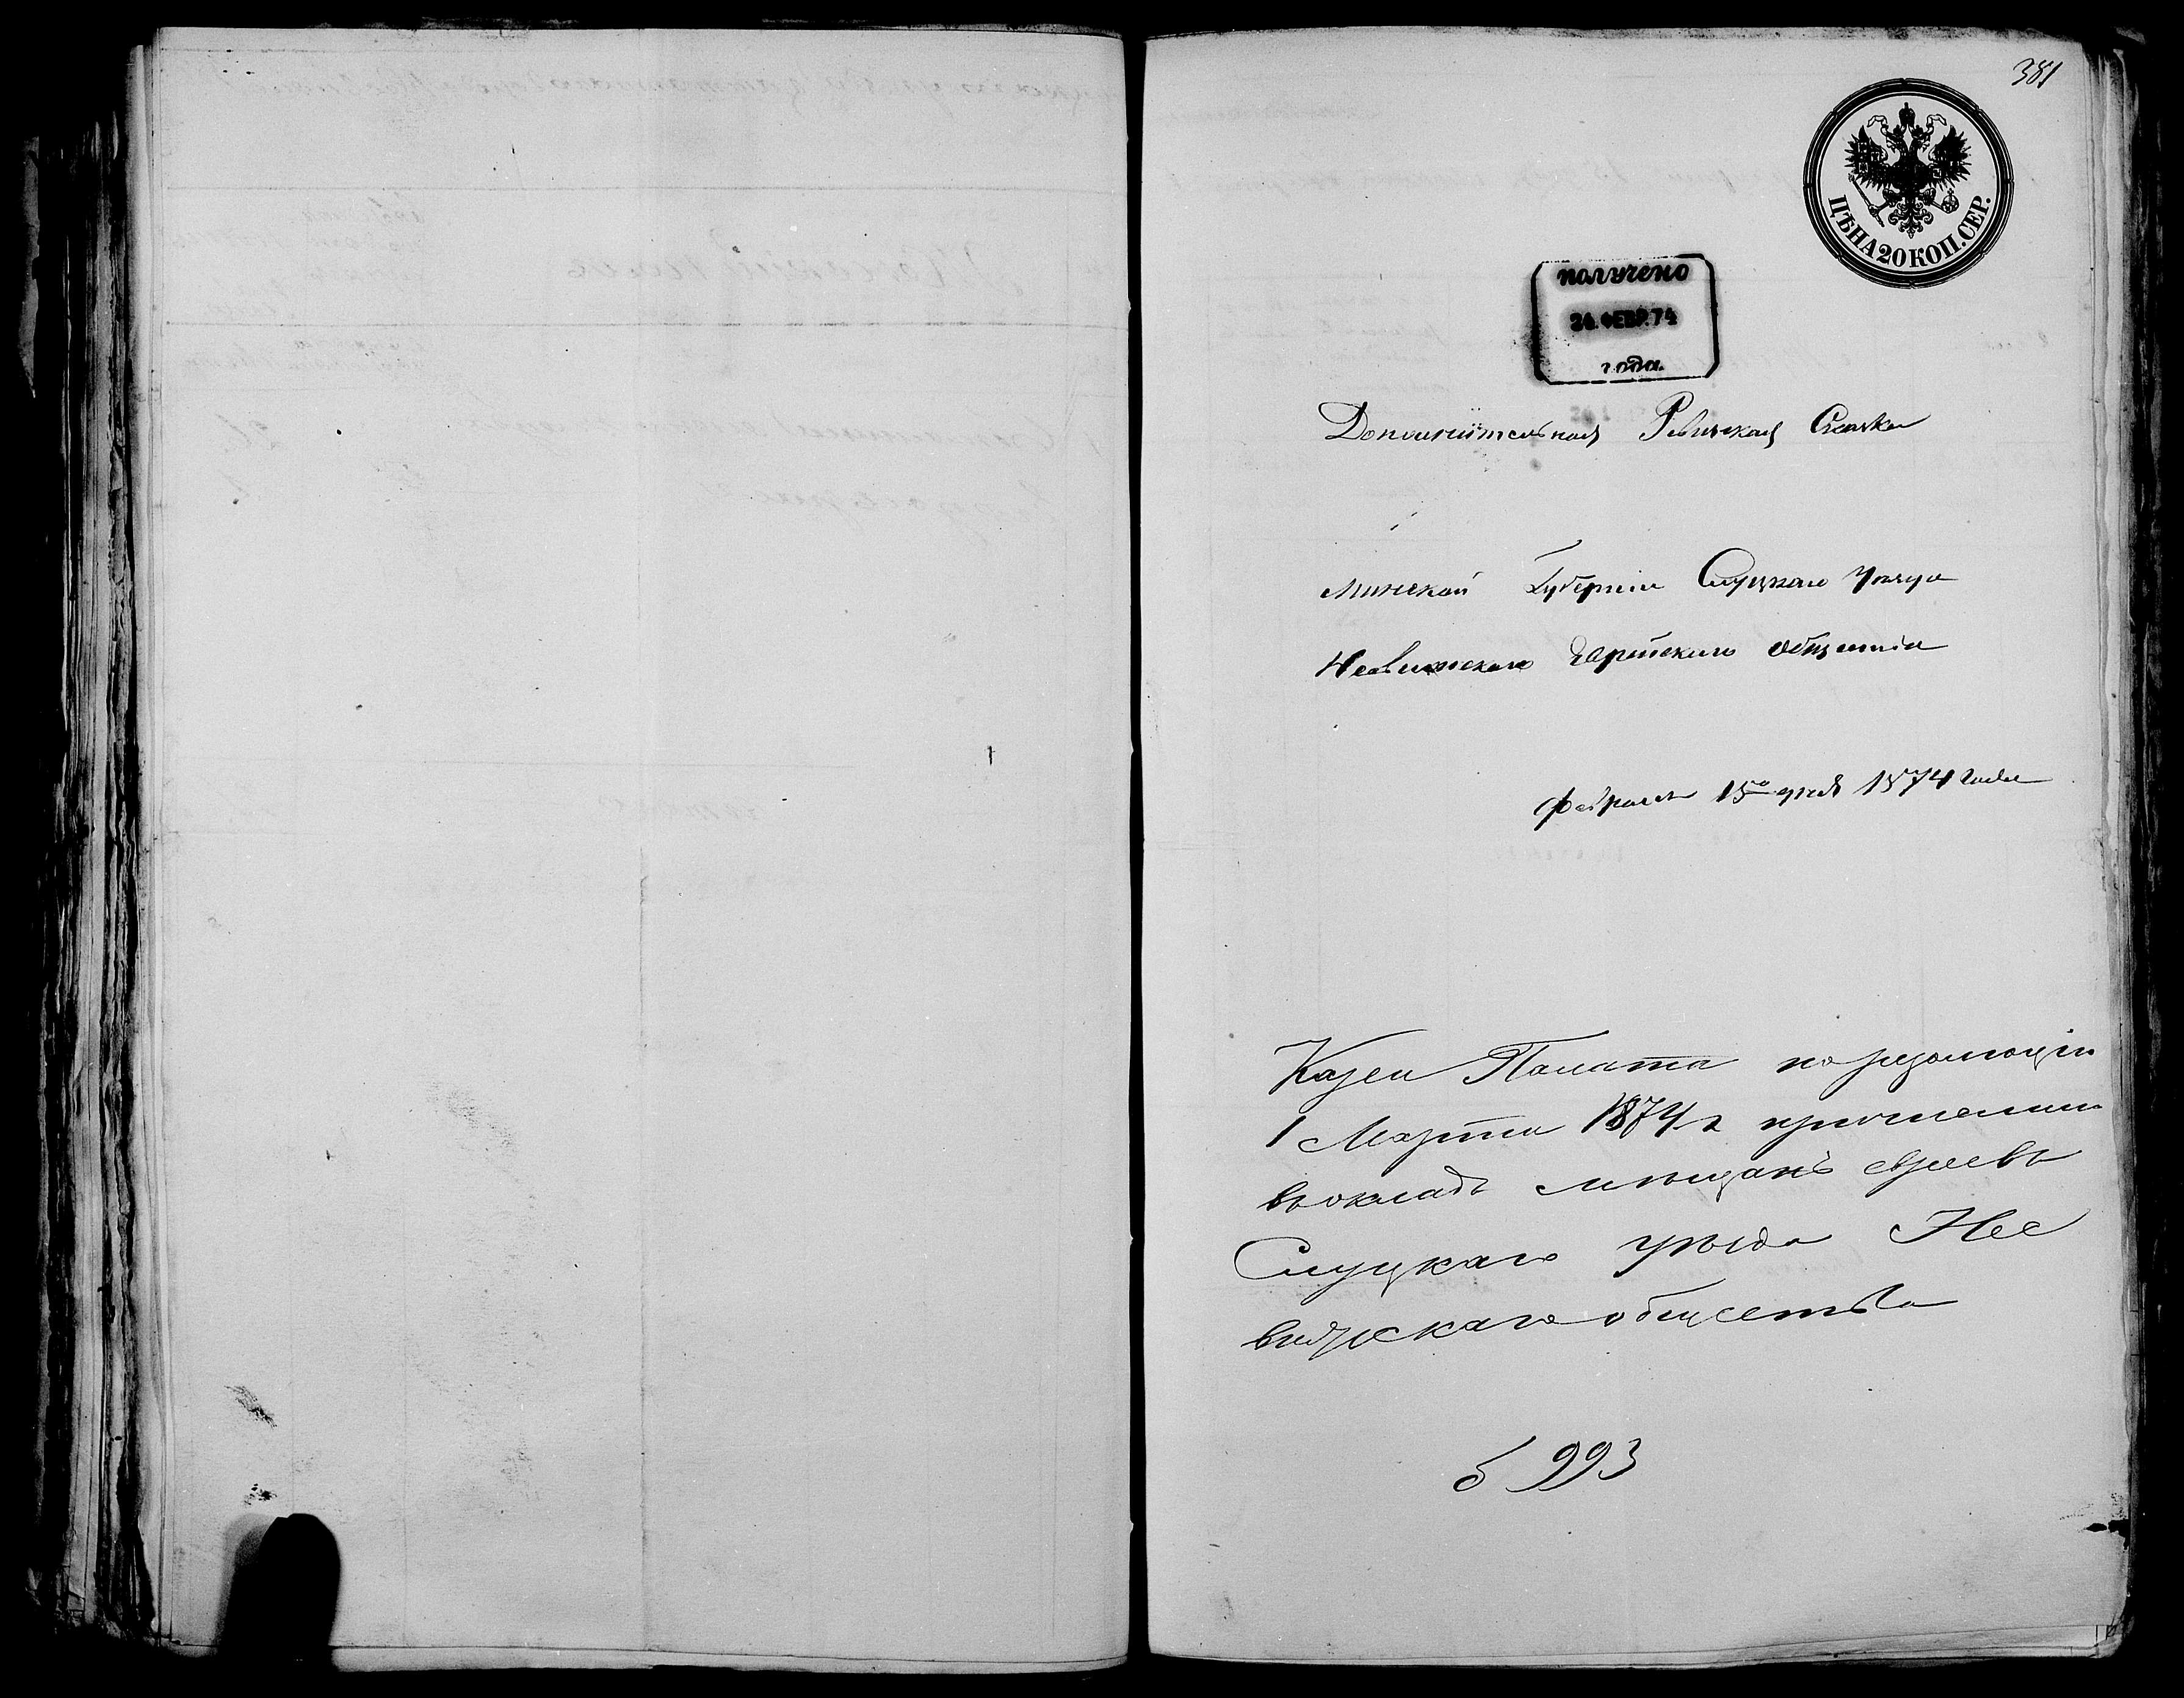 381
ЦѢНА 20 КОП. СЕР.
получено
24 ФЕВР. 74
года.
Дополнительная Ревизская Сказка
Минской Губернии Слуцкаго Уезда
Несвижскаго Еврейскаго общества
Февраля 15го дня 1874 года
Казен Палата по резолюции
1 Марта 1874 г причислила
въ окладъ мещанъ евреевъ
Слуцкаго уезда Нес
вижскаго общества
б 993